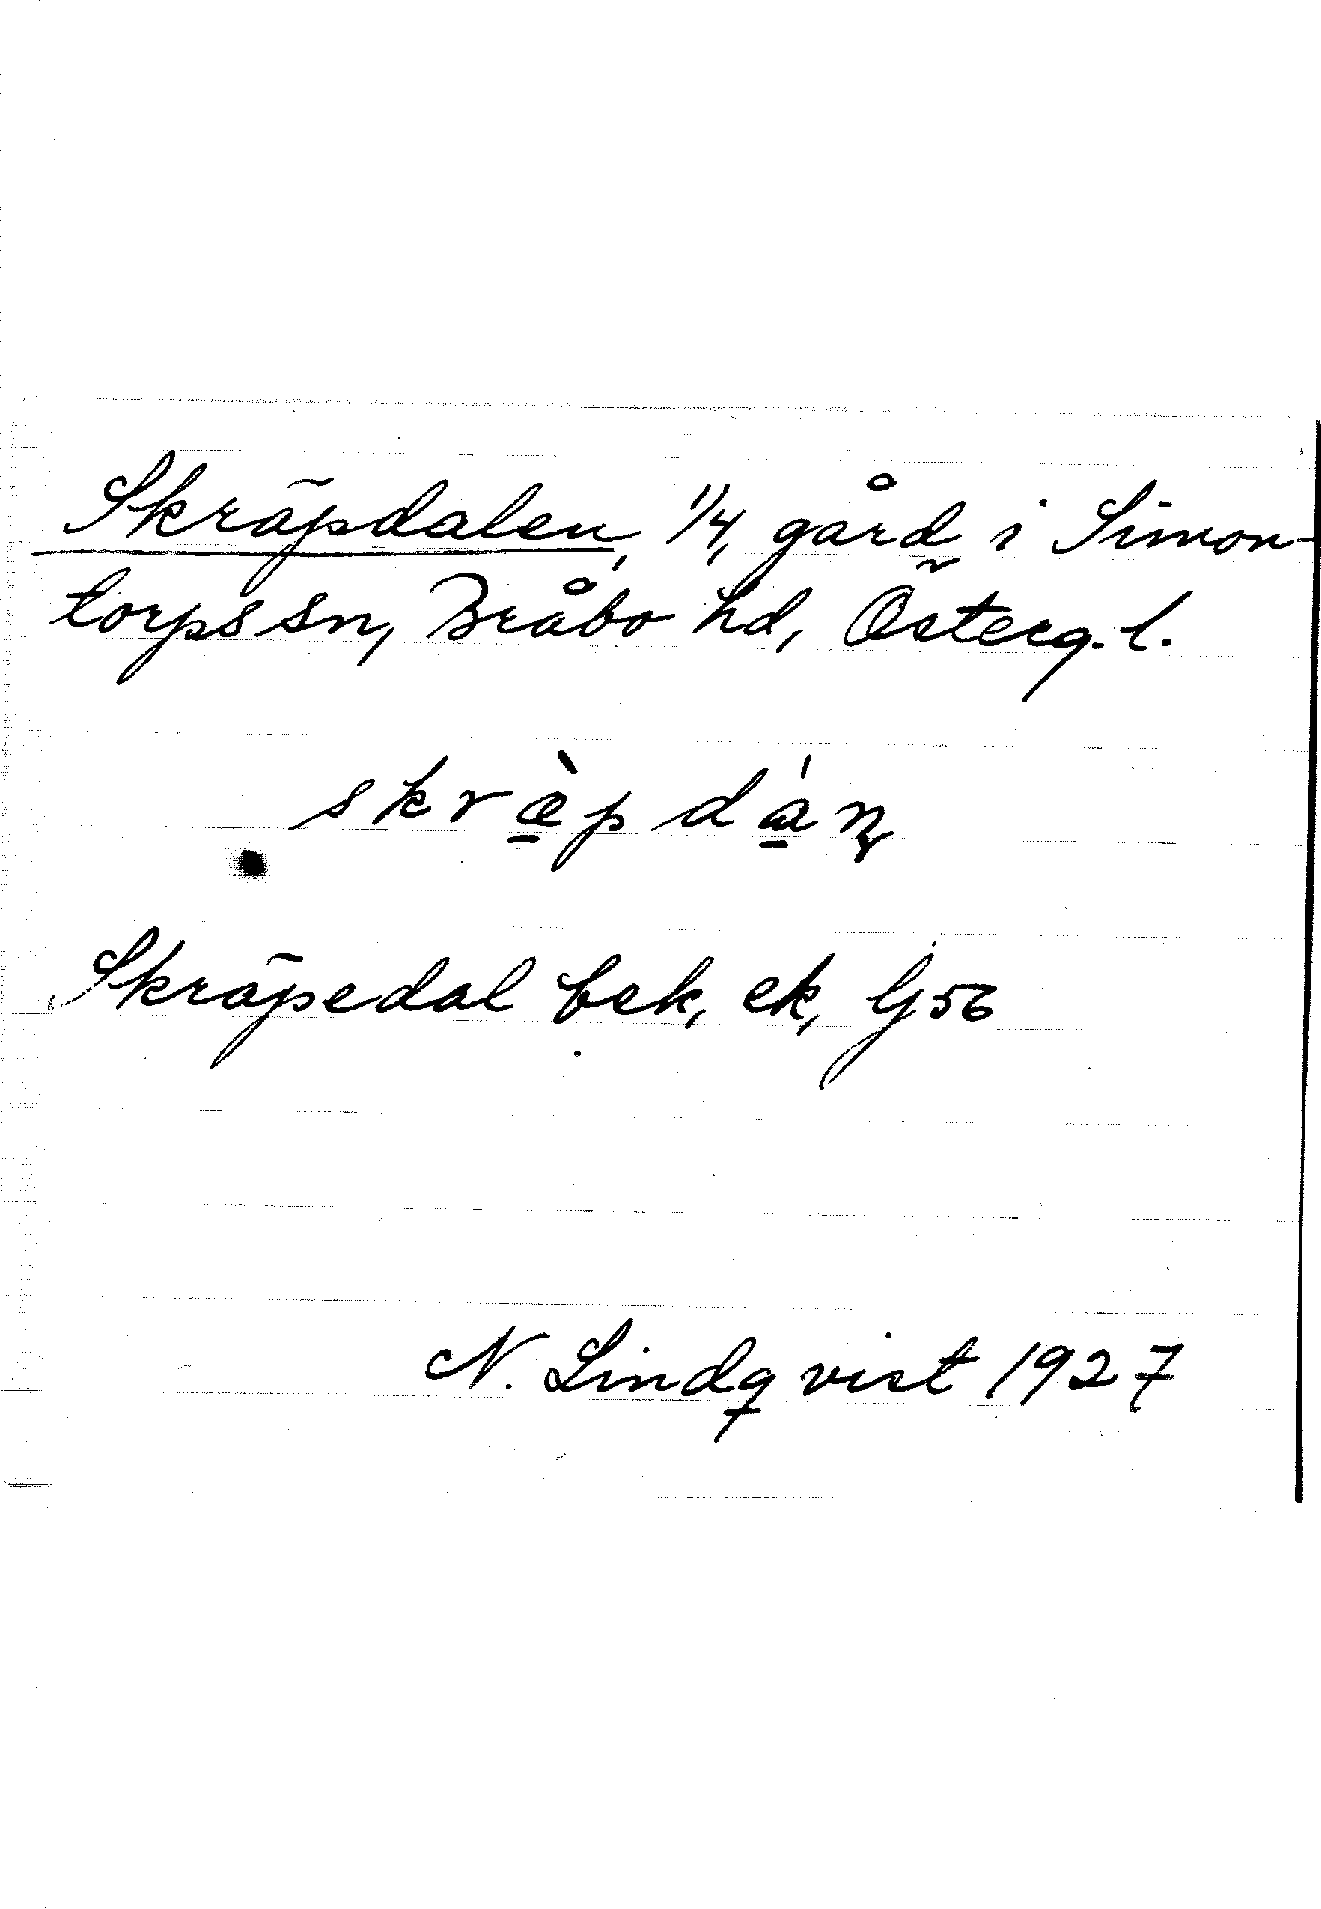 Skräpdalen, 1/4, gård i Simon-
torps sn, Bråbo hd, Österg. l.
skræ̀pdán
Skräpedal bek, ek, Gj 56
N. Lindqvist 1927